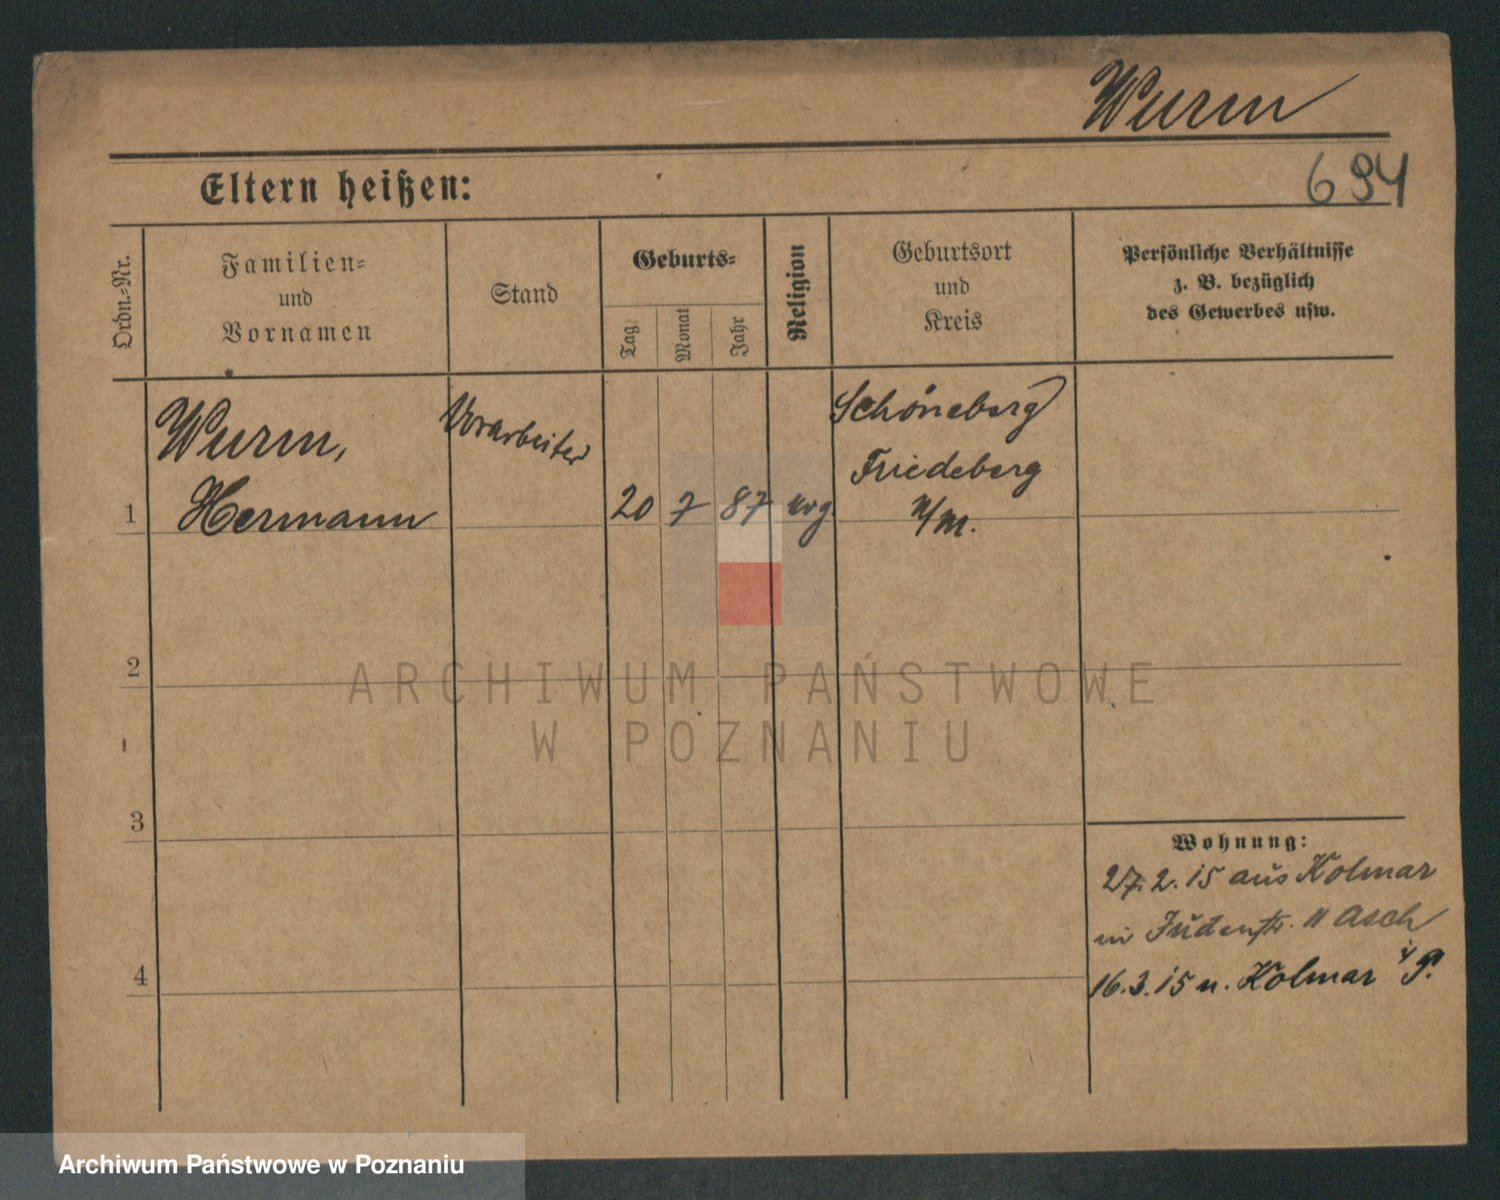 Wurm
694
Eltern heißen:
Ordn.-Nr.
Familien-
und
Vornamen
Stand
Geburts-
Tag
Monat
Jahr
Religion
Geburtsort
und
Kreis
Persönliche Verhältnisse
z. B. bezüglich
des Gewerbes usw.
1
Wurm,
Hermann
Vorarbeiter
20 7 87
Schöneberg
Friedeberg
N/M.
2
ARCHIWUM PAŃSTWOWE
W POZNANIU
3
Wohnung:
27.2.15 aus Kolmar
in Judenstr. 11 Asch
4
16.3.15 n. Kolmar i/P.
Archiwum Państwowe w Poznaniu